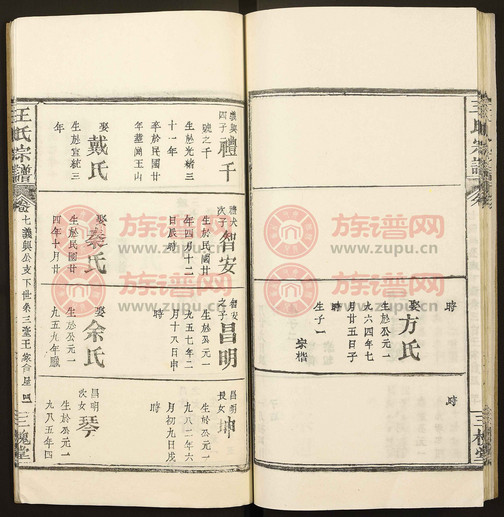 王氏宗譜
卷
七義興公支下世系三聖王家合屋
三槐堂
義興
四子
禮千
號之千
生於光緒三
十一年
卒於民國廿
年葬尚王山
娶戴氏
生於宣統三
年
禮大
次子
智安
生於民國廿
年四月十二
日辰時
娶桑氏
生於民國廿
四年十月廿
智安
之子
昌明
生於公元一
九五七年二
月十八日申
時
娶余氏
生於公元一
九五九年臘
昌明
長女
坤
生於公元一
九八二年六
月初九日戌
時
昌明
次女
琴
生於公元一
九八五年四
時
娶方氏
生於公元一
九六四年七
月廿五日子
時
生子一
宗楷
時
族谱网
www.zupu.cn
族谱网
www.zupu.cn